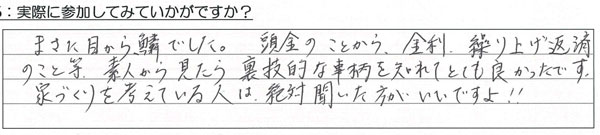 :実際に参加してみていかがですか?
まさに目から鱗でした。 頭金のことから、金利、繰り上げ返済
のこと等、素人から見たら裏技的な事柄を知れてとても良かったです。
家づくりを考えている人は、絶対聞いた方がいいですよ!!